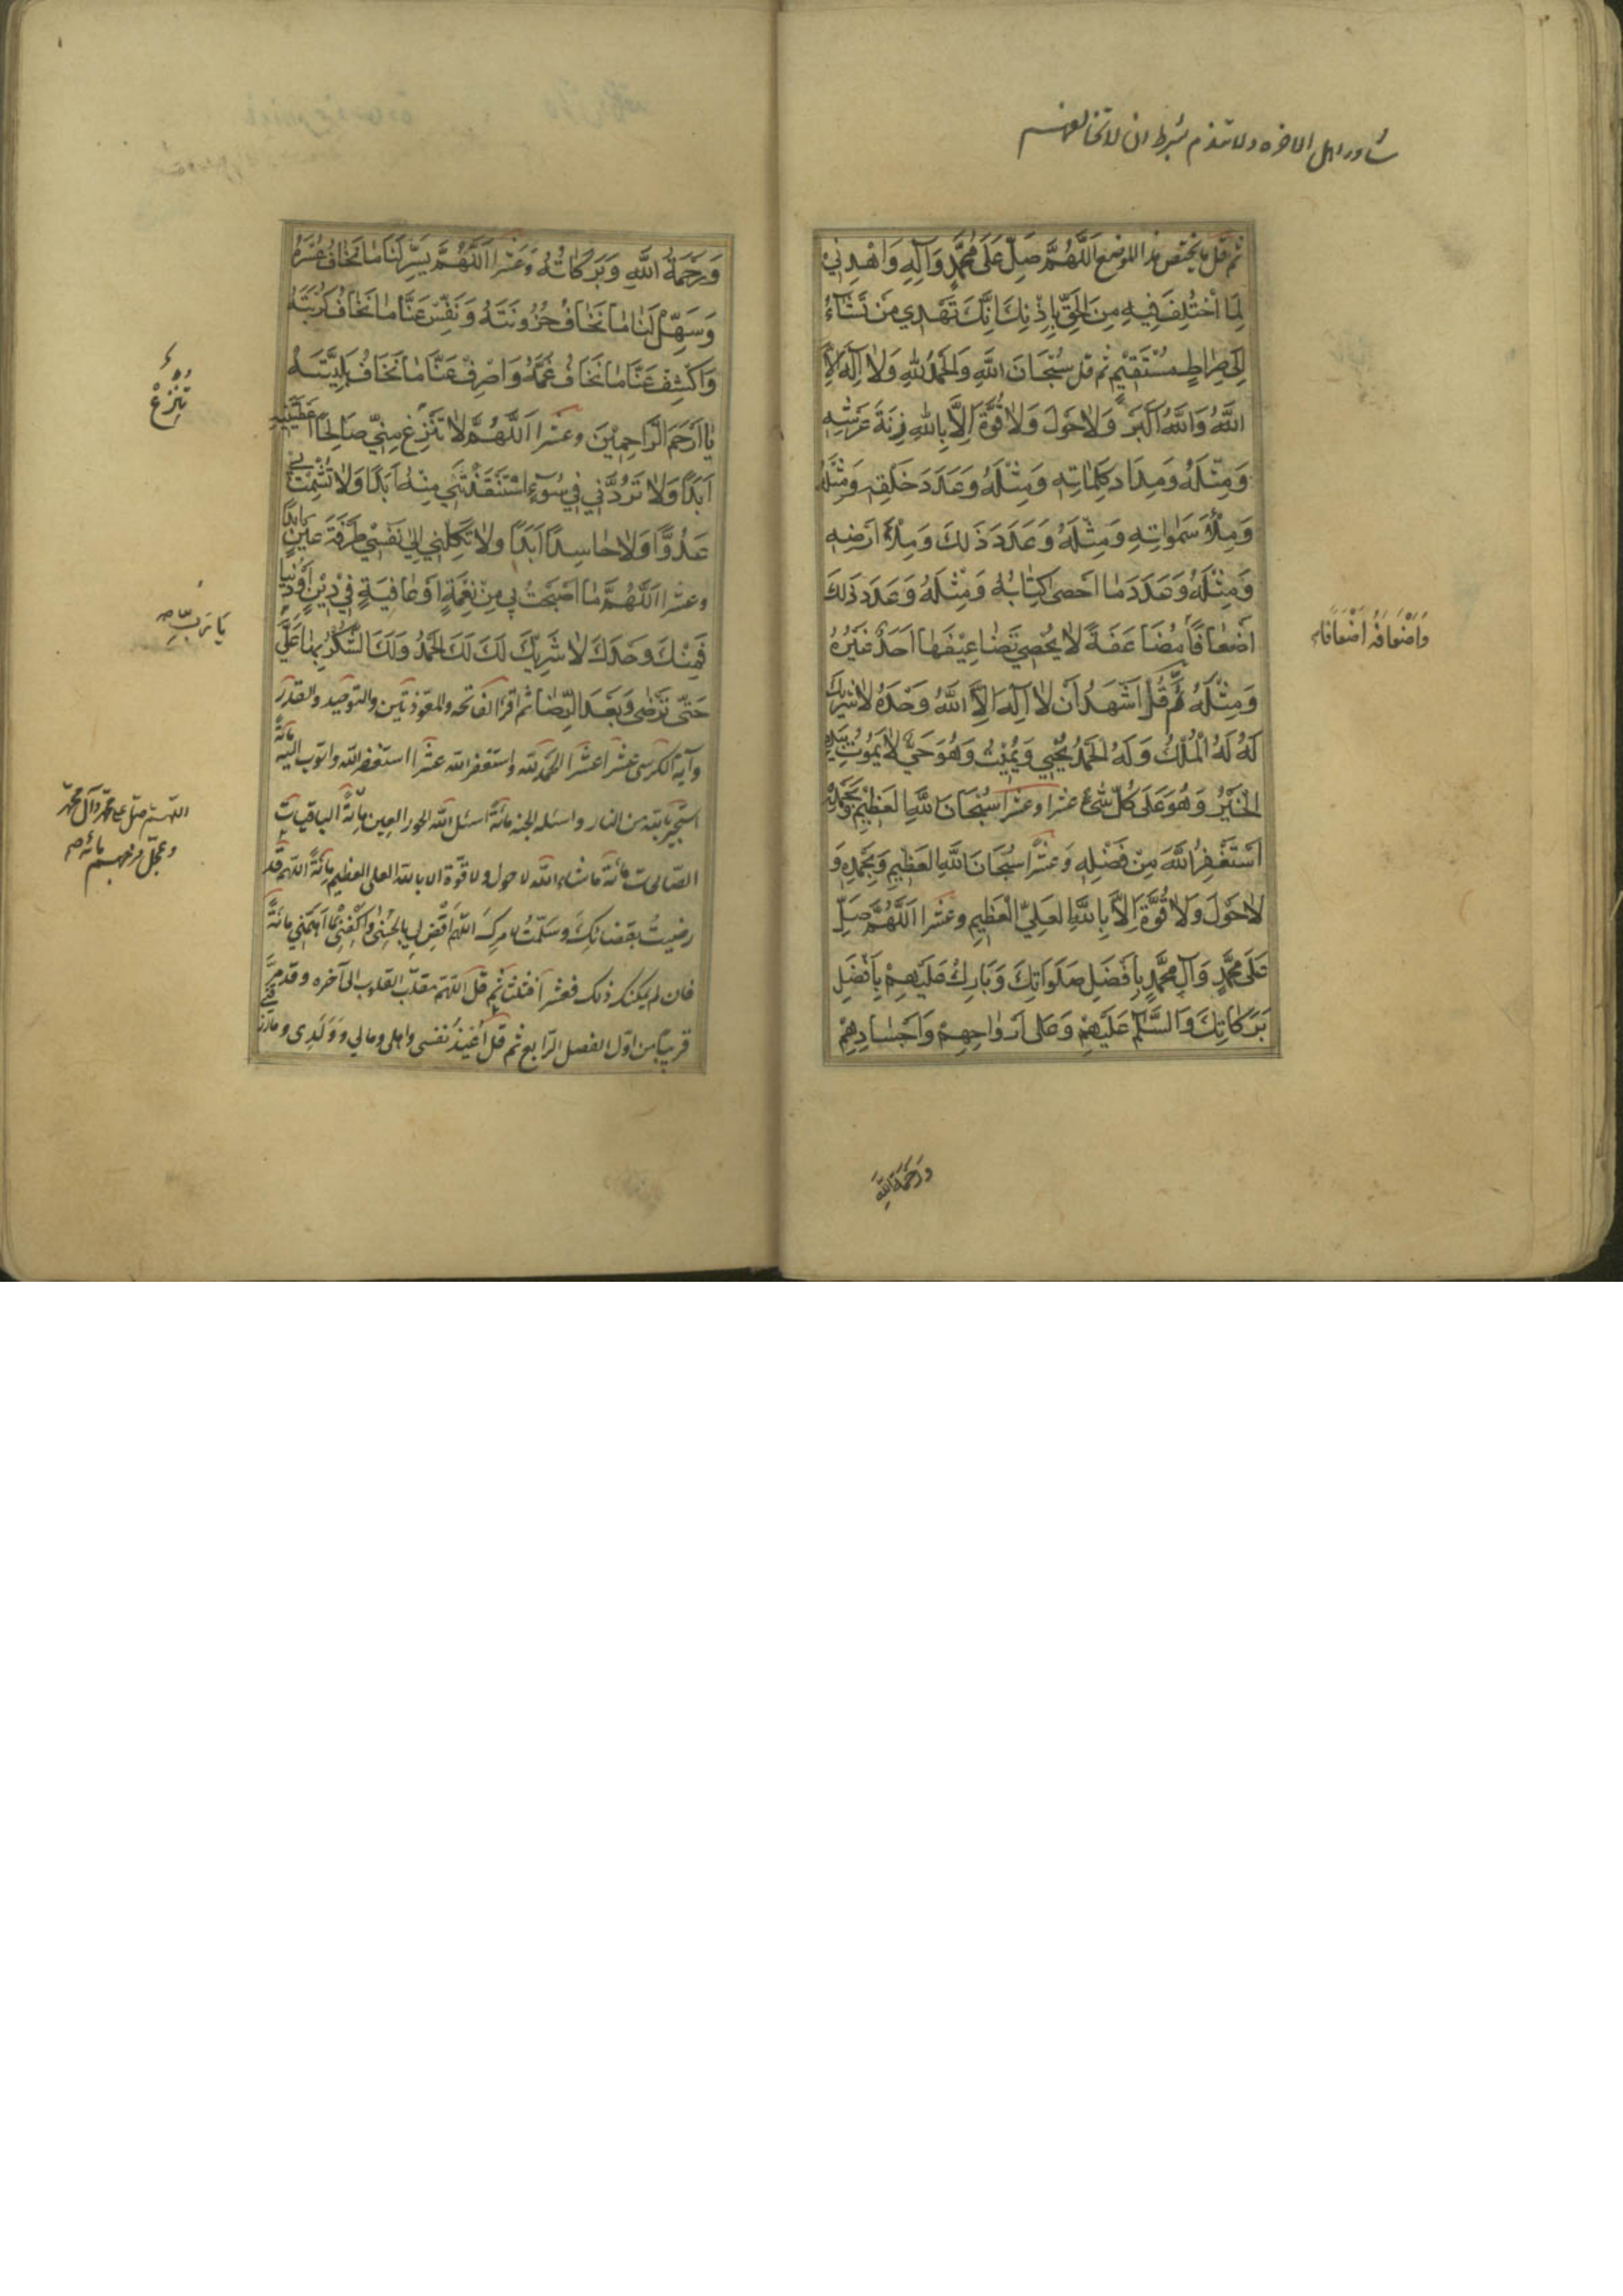 شاور اهل الاخره ولا تندم بشرط ان لا تخالفهم
ثم قل ما يختص هذا الموضع اَللّهُمَّ صَلِّ عَلى مُحَمَّدٍ وَآلِهِ وَاهْدِنِي
لِمَا اخْتُلِفَ فِيهِ مِنَ الحَقِّ بِإِذْنِكَ إِنَّكَ تَهْدِي مَنْ تَشَاءُ
اِلى صِراطٍ مُسْتَقيمٍ ثم قل سُبْحَانَ اللَّهِ وَالحَمْدُ لِلّهِ وَلا اِلهَ اِلاَّ
اللّهُ وَاللّهُ اَكْبَرُ وَلا حَوْلَ وَلا قُوَّةَ اِلّا بِاللّهِ زِنَةَ عَرْشِهِ
وَمِثْلَهُ وَمِدَادَ كَلِمَاتِهِ وَمِثْلَهُ وَعَدَدَ خَلْقِهِ وَمِثْلَهُ
وَمِلْأَ سَمواتِهِ وَمِثْلَهُ وَعَدَدَ ذَلِكَ وَمِلْأَ اَرْضِهِ
وَمِثْلَهُ وَعَدَدَ مَا اَحْصى كِتابُهُ وَمِثْلَهُ وَعَدَدَ ذلِكَ
اَضْعافًا مُضَاعَفَةً لا يُحْصِي تَضَاعِيفَهَا اَحَدٌ غَيْرُهُ
وَاَضْعَافَهُ اَضْعَافًا
وَمِثْلَهُ ثُمَّ قُلْ اَشْهَدُ اَنْ لا اِلهَ اِلاَّ اللّهُ وَحْدَهُ لا شَرِيكَ
لَهُ لَهُ الْمُلْكُ وَلَهُ الحَمْدُ يُحْيِي وَيُمِيتُ وَهُوَ حَيٌّ لا يَمُوتُ بِيَدِهِ
الْخَيْرُ وَهُوَ عَلى كُلِّ شَيْءٍ عشرا وعشرا سُبْحَانَ اللَّهِ العَظِيمِ وَبِحَمْدِهِ
اَسْتَغْفِرُ اللَّهَ مِنْ فَضْلِهِ وَعَشْرًا سُبْحَانَ اللَّهِ العَظِيمِ وَبِحَمْدِهِ وَ
لا حَوْلَ وَلا قُوَّةَ اِلاَّ بِاللَّهِ العَلِيِّ الْعَظِيمِ وعَشْرا اَللَّهُمَّ صَلِّ
عَلَى مُحَمَّدٍ وَآلِ مُحَمَّدٍ بِاَفْضَلِ صَلَوَاتِكَ وَبَارِكْ عَلَيْهِمْ بِاَفْضَلِ
بَرَكَاتِكَ وَالسَّلامُ عَلَيْهِمْ وَعَلى اَرْواحِهِمْ وَاَجْسَادِهِمْ
وَرَحْمَةُ اللَّهِ
وَرَحْمَةُ اللَّهِ وَبَرَكَاتُهُ وَعَشْرا اَللَّهُمَّ يَسِّرْ لَنَا مَا نَخَافُ عُسْرَهُ
وَسَهِّلْ لَنَا مَا نَخَافُ حُزُونَتَهُ وَنَفِّسْ عَنَّا مَا نَخَافُ كُرْبَتَهُ
وَاكْشِفْ عَنَّا مَا نَخَافُ غَمَّهُ وَاصْرِفْ عَنَّا مَا نَخَافُ بَلِيَّتَهُ
يَا اَرْحَمَ الرَّاحِمِينَ وعشرا اَللَّهُمَّ لا تَنْزِعْ مِنِّي صَالِحَ مَا اَعْطَيْتَنِيهِ
تَنْزِعْ
اَبَدًا وَلا تَرُدَّنِي فِي سُوءٍ اسْتَنْقَذْتَنِي مِنْهُ اَبَدًا وَلا تُشْمِتْ بِي
عَدُوًّا وَلا حَاسِدًا اَبَدًا وَلا تَكِلْنِي اِلى نَفْسِي طَرْفَةَ عَيْنٍ اَبَدًا
وعشرا اَللَّهُمَّ مَا اَصْبَحَتْ بِي مِنْ نِعْمَةٍ اَوْ عَافِيَةٍ فِي دِيْنٍ اَوْ دُنْيَا
فَمِنْكَ وَحْدَكَ لا شَرِيكَ لَكَ لَكَ الحَمْدُ وَلَكَ الشُّكْرُ بِهَا عَلَيَّ
يَا رَبِّ
حَتّى تَرْضى وَبَعْدَ الرِّضَا ثم اقرا الفاتحه والمعوذتين والتوحيد والقدر
وآية الكرسى عشرا عشرا الحمد لله واستغفر الله عشرا استغفر الله واتوب اليه مائة
استجير بالله من النار واسئله الجنه مائة اسئل الله الحور العين مائة الباقيات
اللهم صل على محمد وآل محمد
وعجل فرجهم مائه
الصالحات مائة ما شاء الله لا حول ولا قوة الا بالله العلى العظيم مائة اللهم قد
رضيت بقضائك وسلمت لامرك اللهم اقض لي بالحسنى واكفني ما اهمني مائة
فان لم يمكنك ذلك فعشرا فثلثا ثم قل اللهم مقلب القلوب الى آخره وقد مر
قريبا من اول الفصل الرابع ثم قل اعيذ نفسى واهلى ومالي وولدى وما رزقني